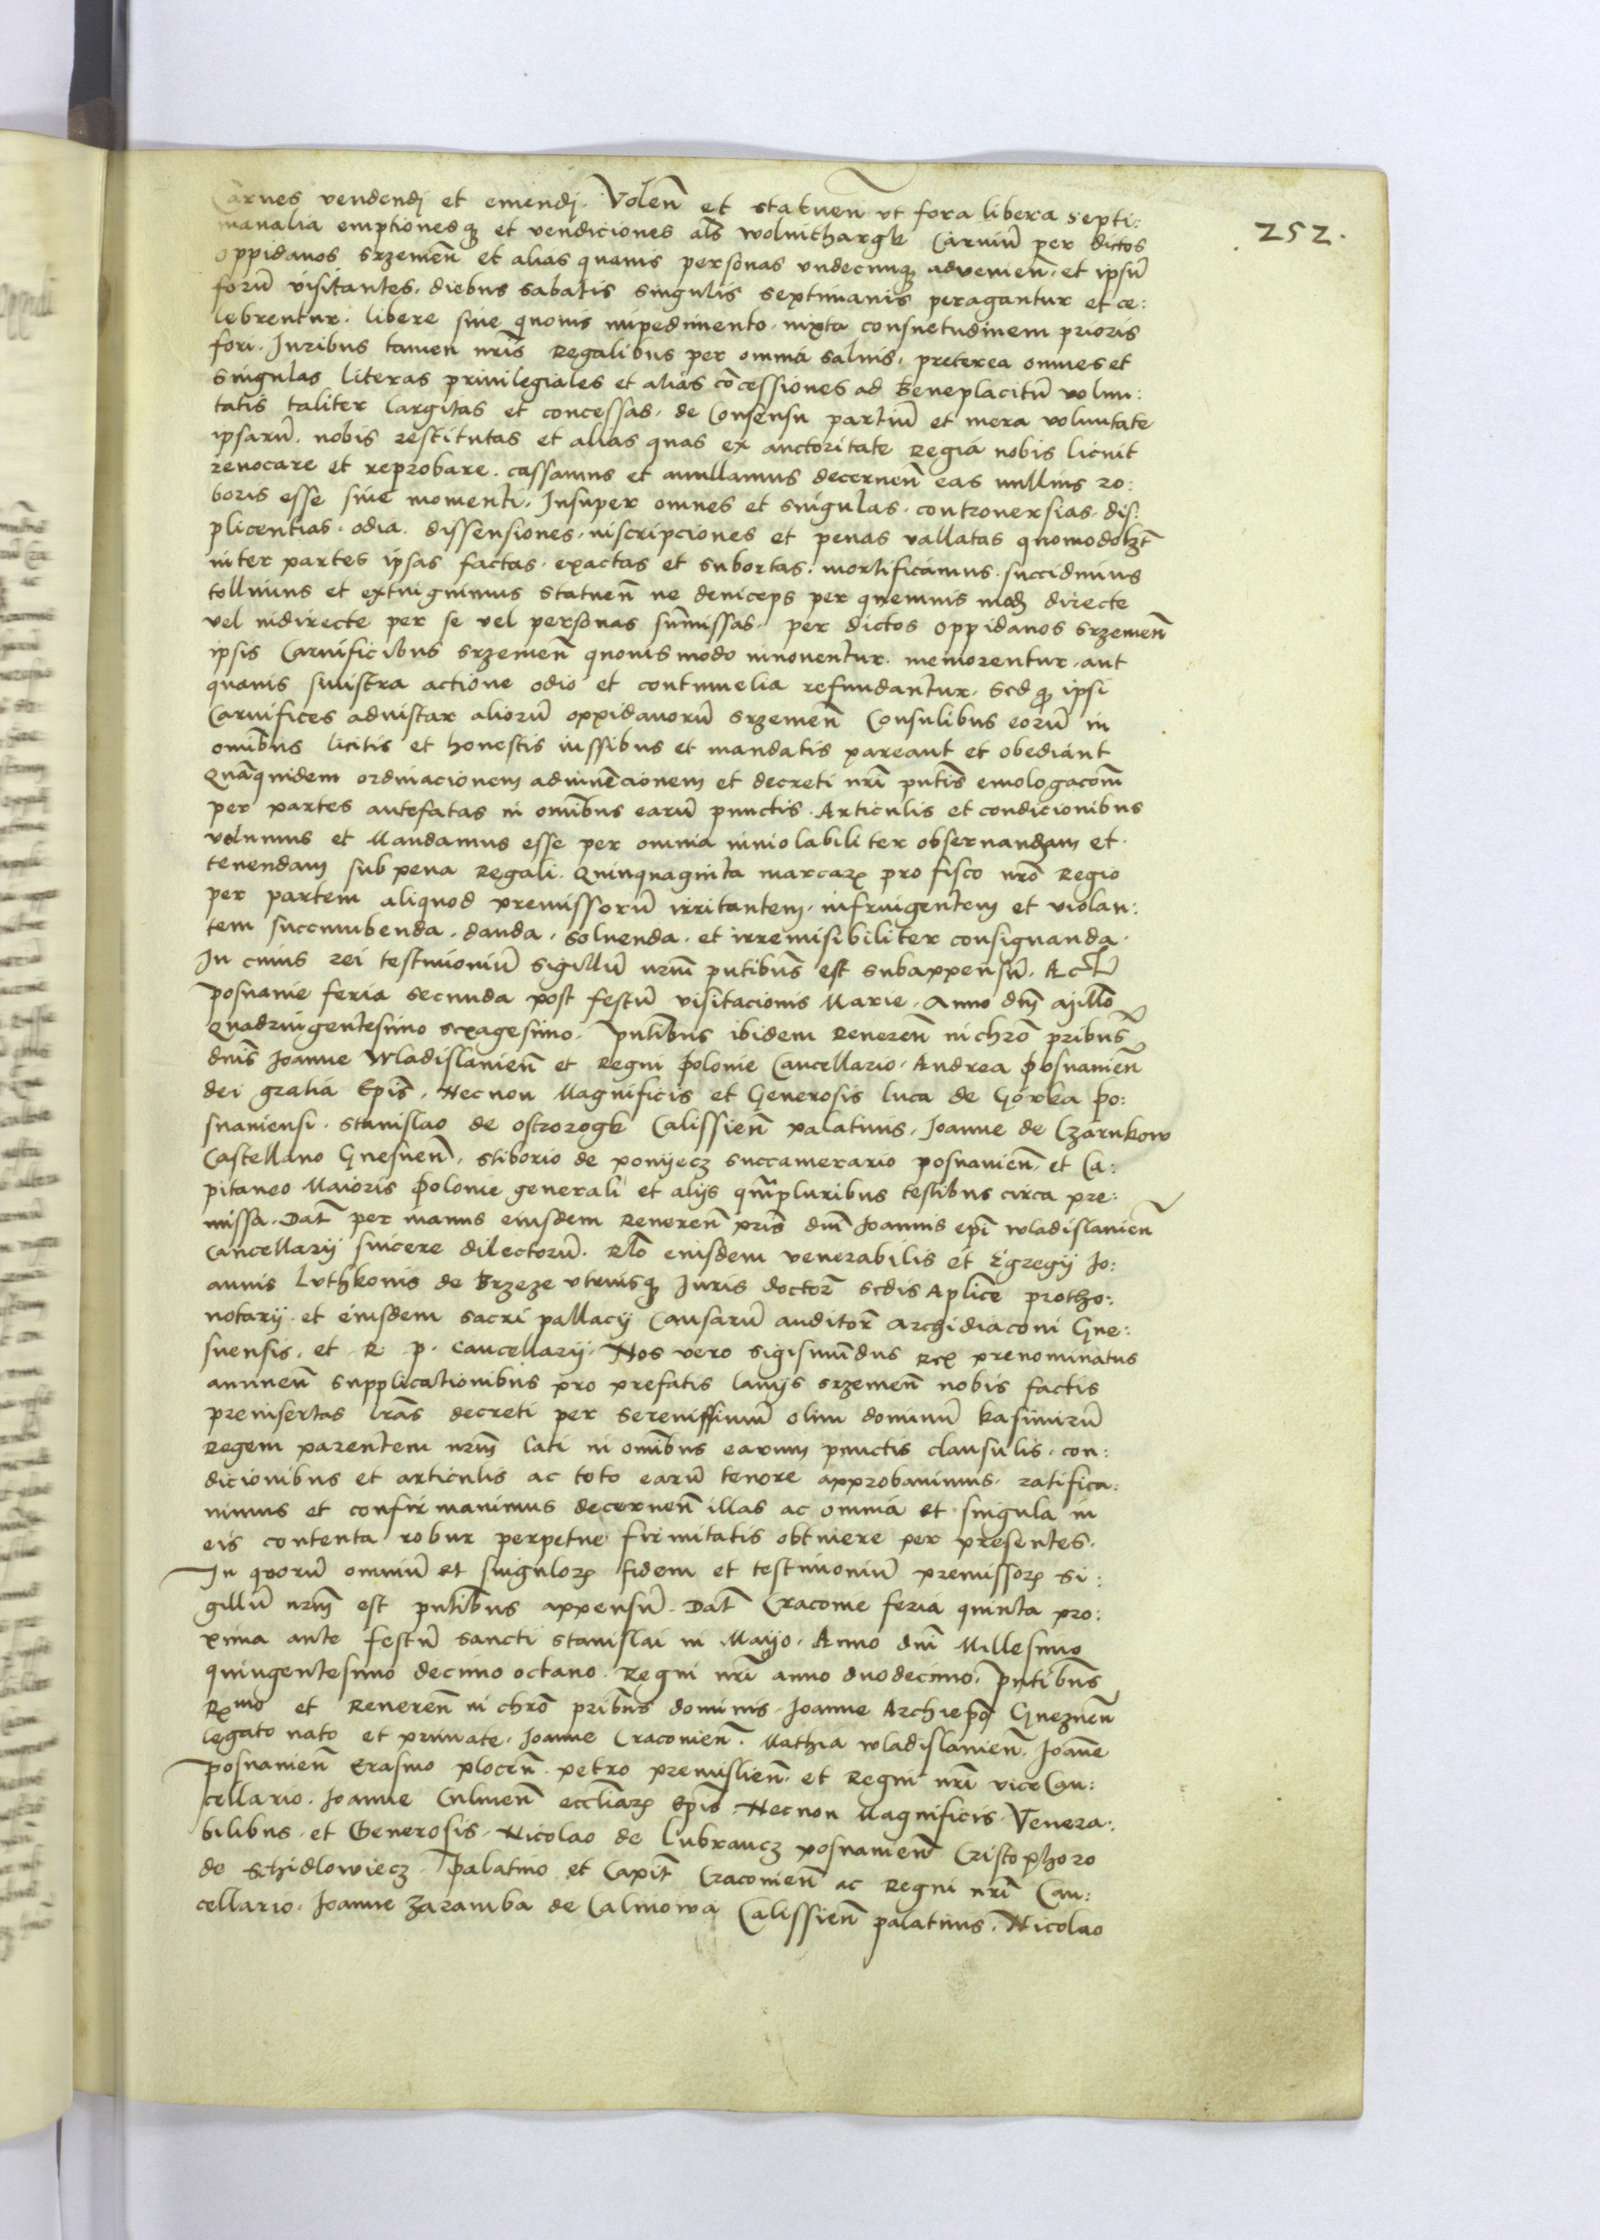 252.
Carnes vendendj et emendj. Volen̄ et statuen̄ vt fora libera septi:
manalia emptionesqꝫ et vendiciones al̄s wolnithargk Carniū per dictos
Oppidanos Srzemen̄ et alias quauis personas vndecunqꝫ aduenien̄. et ipsū
forū visitantes. diebus sabatis singulis septimanis peragantur et ce:
lebrentur. libere sine quouis impedimento. iuxta consuetudinem prioris
fori. Iuribus tamen nr̄is Regalibus per omnia saluis. preterea omnes et
singulas literas priuilegiales et alias cōcessiones ad Beneplacitū volun:
tatis taliter largitas et concessas. de Consensu partiū et mera voluntate
ipsarū. nobis restitutas et alias quas ex auctoritate Regia nobis licuit
reuocare et reprobare. cassamus et annullamus decernen̄ eas nullius ro:
boris esse siue momenti. Insuper omnes et singulas. controuersias. dis:
plicentias. odia. dissensiones. inscripciones et penas vallatas quomodolꝫt
inter partes ipsas factas. exactas et subortas. mortificamus. succidimus
tollimus et extinguimus statuen̄ ne deinceps per quemuis modꝫ directe
vel indirecte per se vel personas sum̄issas. per dictos oppidanos Srzemen̄
ipsis Carnificibus Srzemen̄ quouis modo innouentur. memorentur. aut
quauis sinistra actione odio et contumelia refundantur. Sed qꝫ ipsi
Carnifices adinstar aliorū oppidanorū Srzemen̄ Consulibus eorū in
om̄ibus licitis et honestis iussibus et mandatis pareant et obediant
Quāquidem ordinacionem adinuēcionem et decreti nr̄i pn̄tis emologacōm
per partes antefatas in om̄ibus earū punctis. Articulis et condicionibus
volumus et Mandamus esse per omnia inuiolabiliter obseruandam et
tenendam sub pena Regali. Quinquaginta marcarꝫ pro fisco nr̄o Regio
per partem aliquod premissorū irritantem. infringentem et violan:
tem succumbenda. danda. soluenda. et irremisibiliter consignanda.
In cuius rei testimoniū sigillū nrm̄ pn̄tibus est subappensū. Actū
posnanie feria secunda post festū visitacionis Marie. Anno dn̄j Mill̄o
Quadringentesimo sexagesimo. Pn̄tibus ibidem Reueren̄ in chr̄o pr̄ibus
dn̄is Joanne Wladislauien̄ et Regni Polonie Cancellario. Andrea Posnanien̄
dei gratia Ep̄is. Necnon Magnificis et Generosis luca de Górka Po:
snaniensi. Stanislao de ostrorogk Calissien̄ palatinis. Joanne de Czarnkow
Castellano Gnesnen̄. Stiborio de ponyecz succamerario posnanien̄. et Ca:
pitaneo Maioris Polonie generali et alijs qm̄pluribus testibus circa pre:
missa. Dat̄ per manus eiusdem Reueren̄ pr̄is dn̄i Joannis ep̄i wladislauien̄
Cancellarij sincere dilectorū. Rl̄o eiusdem venerabilis et Egregij Jo:
annis luthkonis de Brzeze vtriusqꝫ Iuris doctor̄ sedis Apl̄ice protho:
notarij. et eiusdem sacri pallacij Causarū auditor̄ Archidiaconi Gne:
snensis. et R. p. Cancellarij. Nos vero Sigismūdus Rex prenominatus
annuen̄ supplicationibus pro prefatis lanijs srzemen̄ nobis factis
preinsertas lr̄as decreti per Serenissimū olim dominū kasimirū
Regem parentem nrm̄ lati in om̄ibus earum punctis clausulis. con:
dicionibus et articulis ac toto earū tenore approbauimus. ratifica:
uimus et confirmauimus decernen̄ illas ac omnia et singula in
eis contenta robur perpetue firmitatis obtinere per presentes.
In quorū omniū et singulorꝫ fidem et testimoniū premissorꝫ si:
gillū nrm̄ est pn̄tibus appensū. Dat̄ Cracouie feria quinta pro:
xima ante festū sancti stanislai in Mayo. Anno dn̄i Millesimo
quingentesimo decimo octauo. Regni nr̄i anno duodecimo. Pn̄tibus
Rᵐᵒ et Reueren̄ in chr̄o pr̄ibus dominis. Joanne Archiep̄o Gneznen̄
legato nato et primate. Joanne Cracouien̄. Mathia wladislauien̄. Joāne
posnanien̄ Erasmo plocen̄. petro premislien̄. et Regni nr̄i viceCan:
cellario. Joanne Culmen̄ eccl̄iarꝫ Ep̄is. Necnon Magnificis. Venera:
bilibus. et Generosis. Nicolao de lubrancz posnanien̄ Cristophoro
de Schidlowiecz. Palatino et Capit̄ Cracouien̄ ac Regni nr̄i Can:
cellario. Joanne Zaramba de Calinowa Calissien̄ palatinis. Nicolao